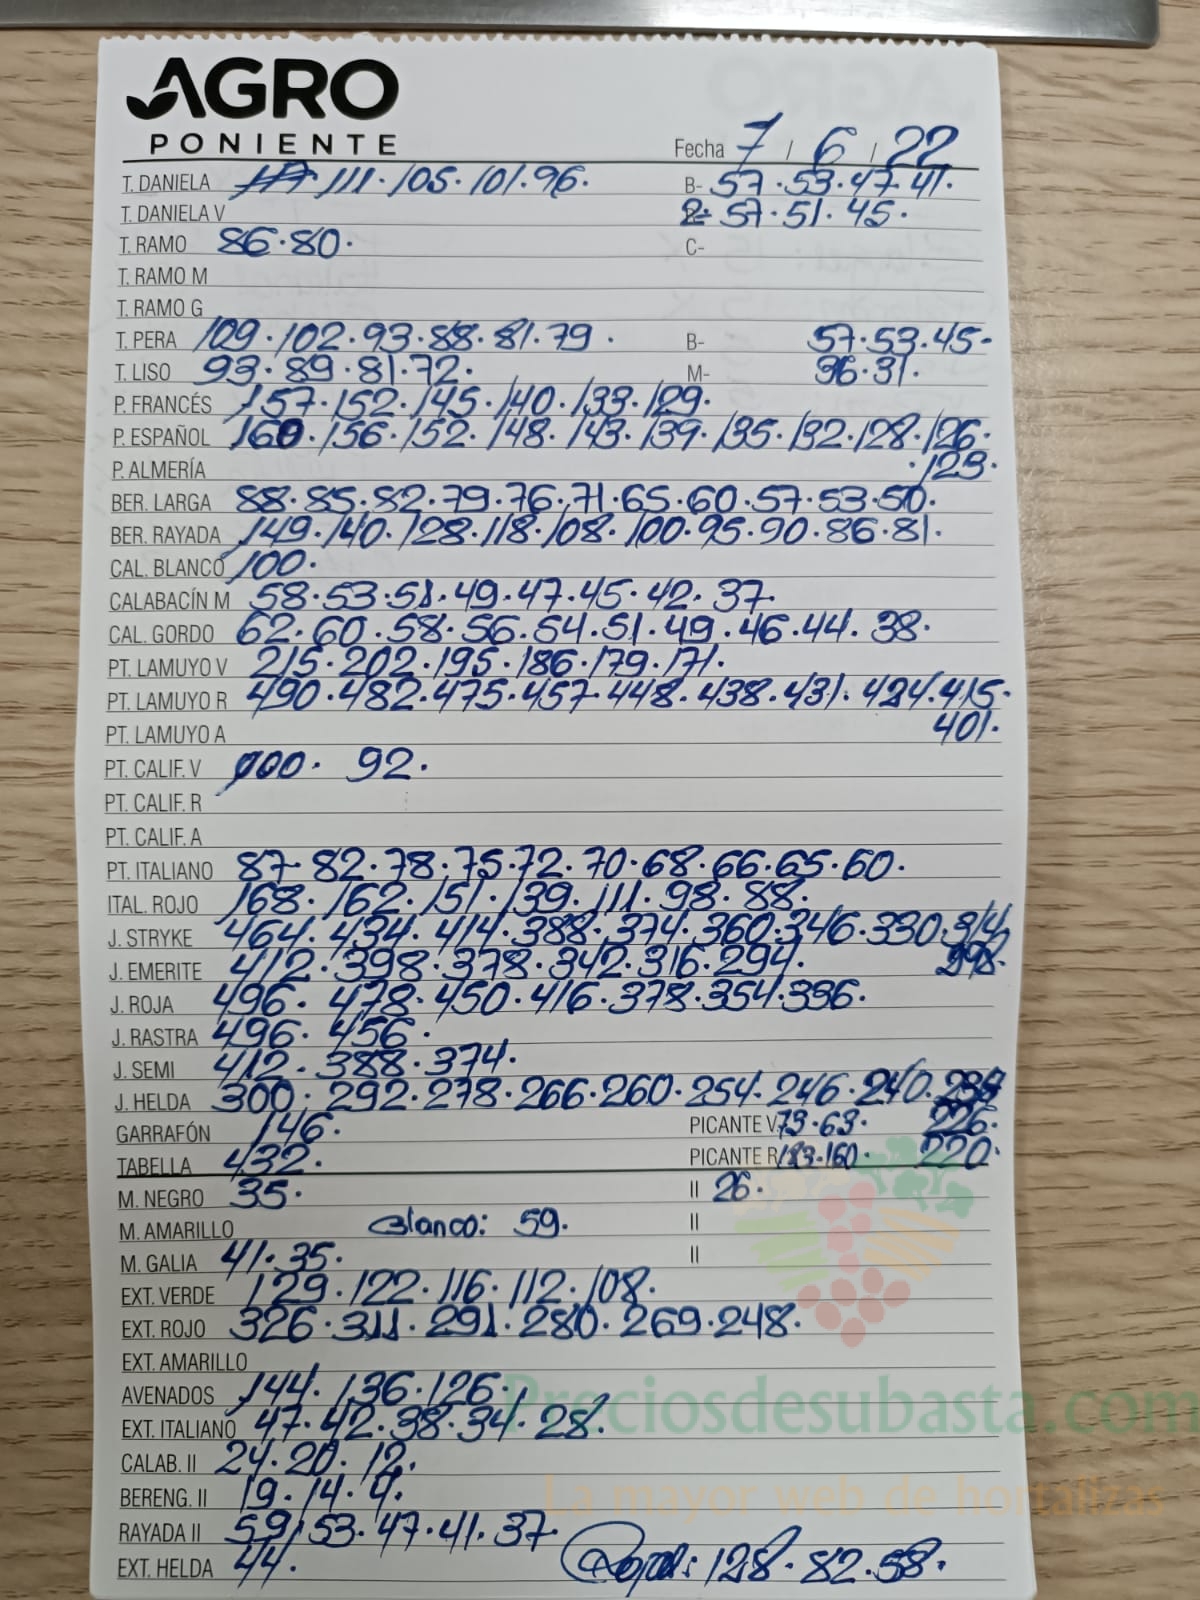 AGRO
PONIENTE
Fecha 7 / 6 / 22
T. DANIELA 111. 105. 101. 96. B- 57. 53. 47. 41.
T. DANIELA V 2: 57. 51. 45.
T. RAMO 86. 80. C-
T. RAMO M
T. RAMO G
T. PERA 109. 102. 93. 88. 81. 79. B- 57. 53. 45.
T. LISO 93. 89. 81. 72. M- 36. 31.
P. FRANCÉS 157. 152. 145. 140. 133. 129.
P. ESPAÑOL 160. 156. 152. 148. 143. 139. 135. 132. 128. 126.
P. ALMERÍA . 123.
BER. LARGA 88. 85. 82. 79. 76. 71. 65. 60. 57. 53. 50.
BER. RAYADA 149. 140. 128. 118. 108. 100. 95. 90. 86. 81.
CAL. BLANCO 100.
CALABACÍN M 58. 53. 51. 49. 47. 45. 42. 37.
CAL. GORDO 62. 60. 58. 56. 54. 51. 49. 46. 44. 38.
PT. LAMUYO V 215. 202. 195. 186. 179. 171.
PT. LAMUYO R 490. 482. 475. 457. 448. 438. 431. 424. 415.
401.
PT. LAMUYO A
PT. CALIF. V 100. 92.
PT. CALIF. R
PT. CALIF. A
PT. ITALIANO 87. 82. 78. 75. 72. 70. 68. 66. 65. 60.
ITAL. ROJO 168. 162. 151. 139. 111. 98. 88.
J. STRYKE 464. 434. 414. 388. 374. 360. 346. 330. 314.
J. EMERITE 412. 398. 378. 342. 316. 294. 298.
J. ROJA 496. 478. 450. 416. 378. 354. 336.
J. RASTRA 496. 456.
J. SEMI 412. 388. 374.
J. HELDA 300. 292. 278. 266. 260. 254. 246. 240.
GARRAFÓN 146. PICANTE V 73. 63. 226.
TABELLA 432. PICANTE R 183. 160. 220.
M. NEGRO 35. II 26.
M. AMARILLO Blanco: 59. II
M. GALIA 41. 35. II
EXT. VERDE 129. 122. 116. 112. 108.
EXT. ROJO 326. 311. 291. 280. 269. 248.
EXT. AMARILLO
AVENADOS 144. 136. 126.
EXT. ITALIANO 47. 42. 38. 34. 28.
CALAB. II 24. 20. 12.
BERENG. II 19. 14. 4.
RAYADA II 59. 53. 47. 41. 37.
EXT. HELDA 44. 128. 82. 58.
Preciosdesubasta.com
La mayor web de hortalizas